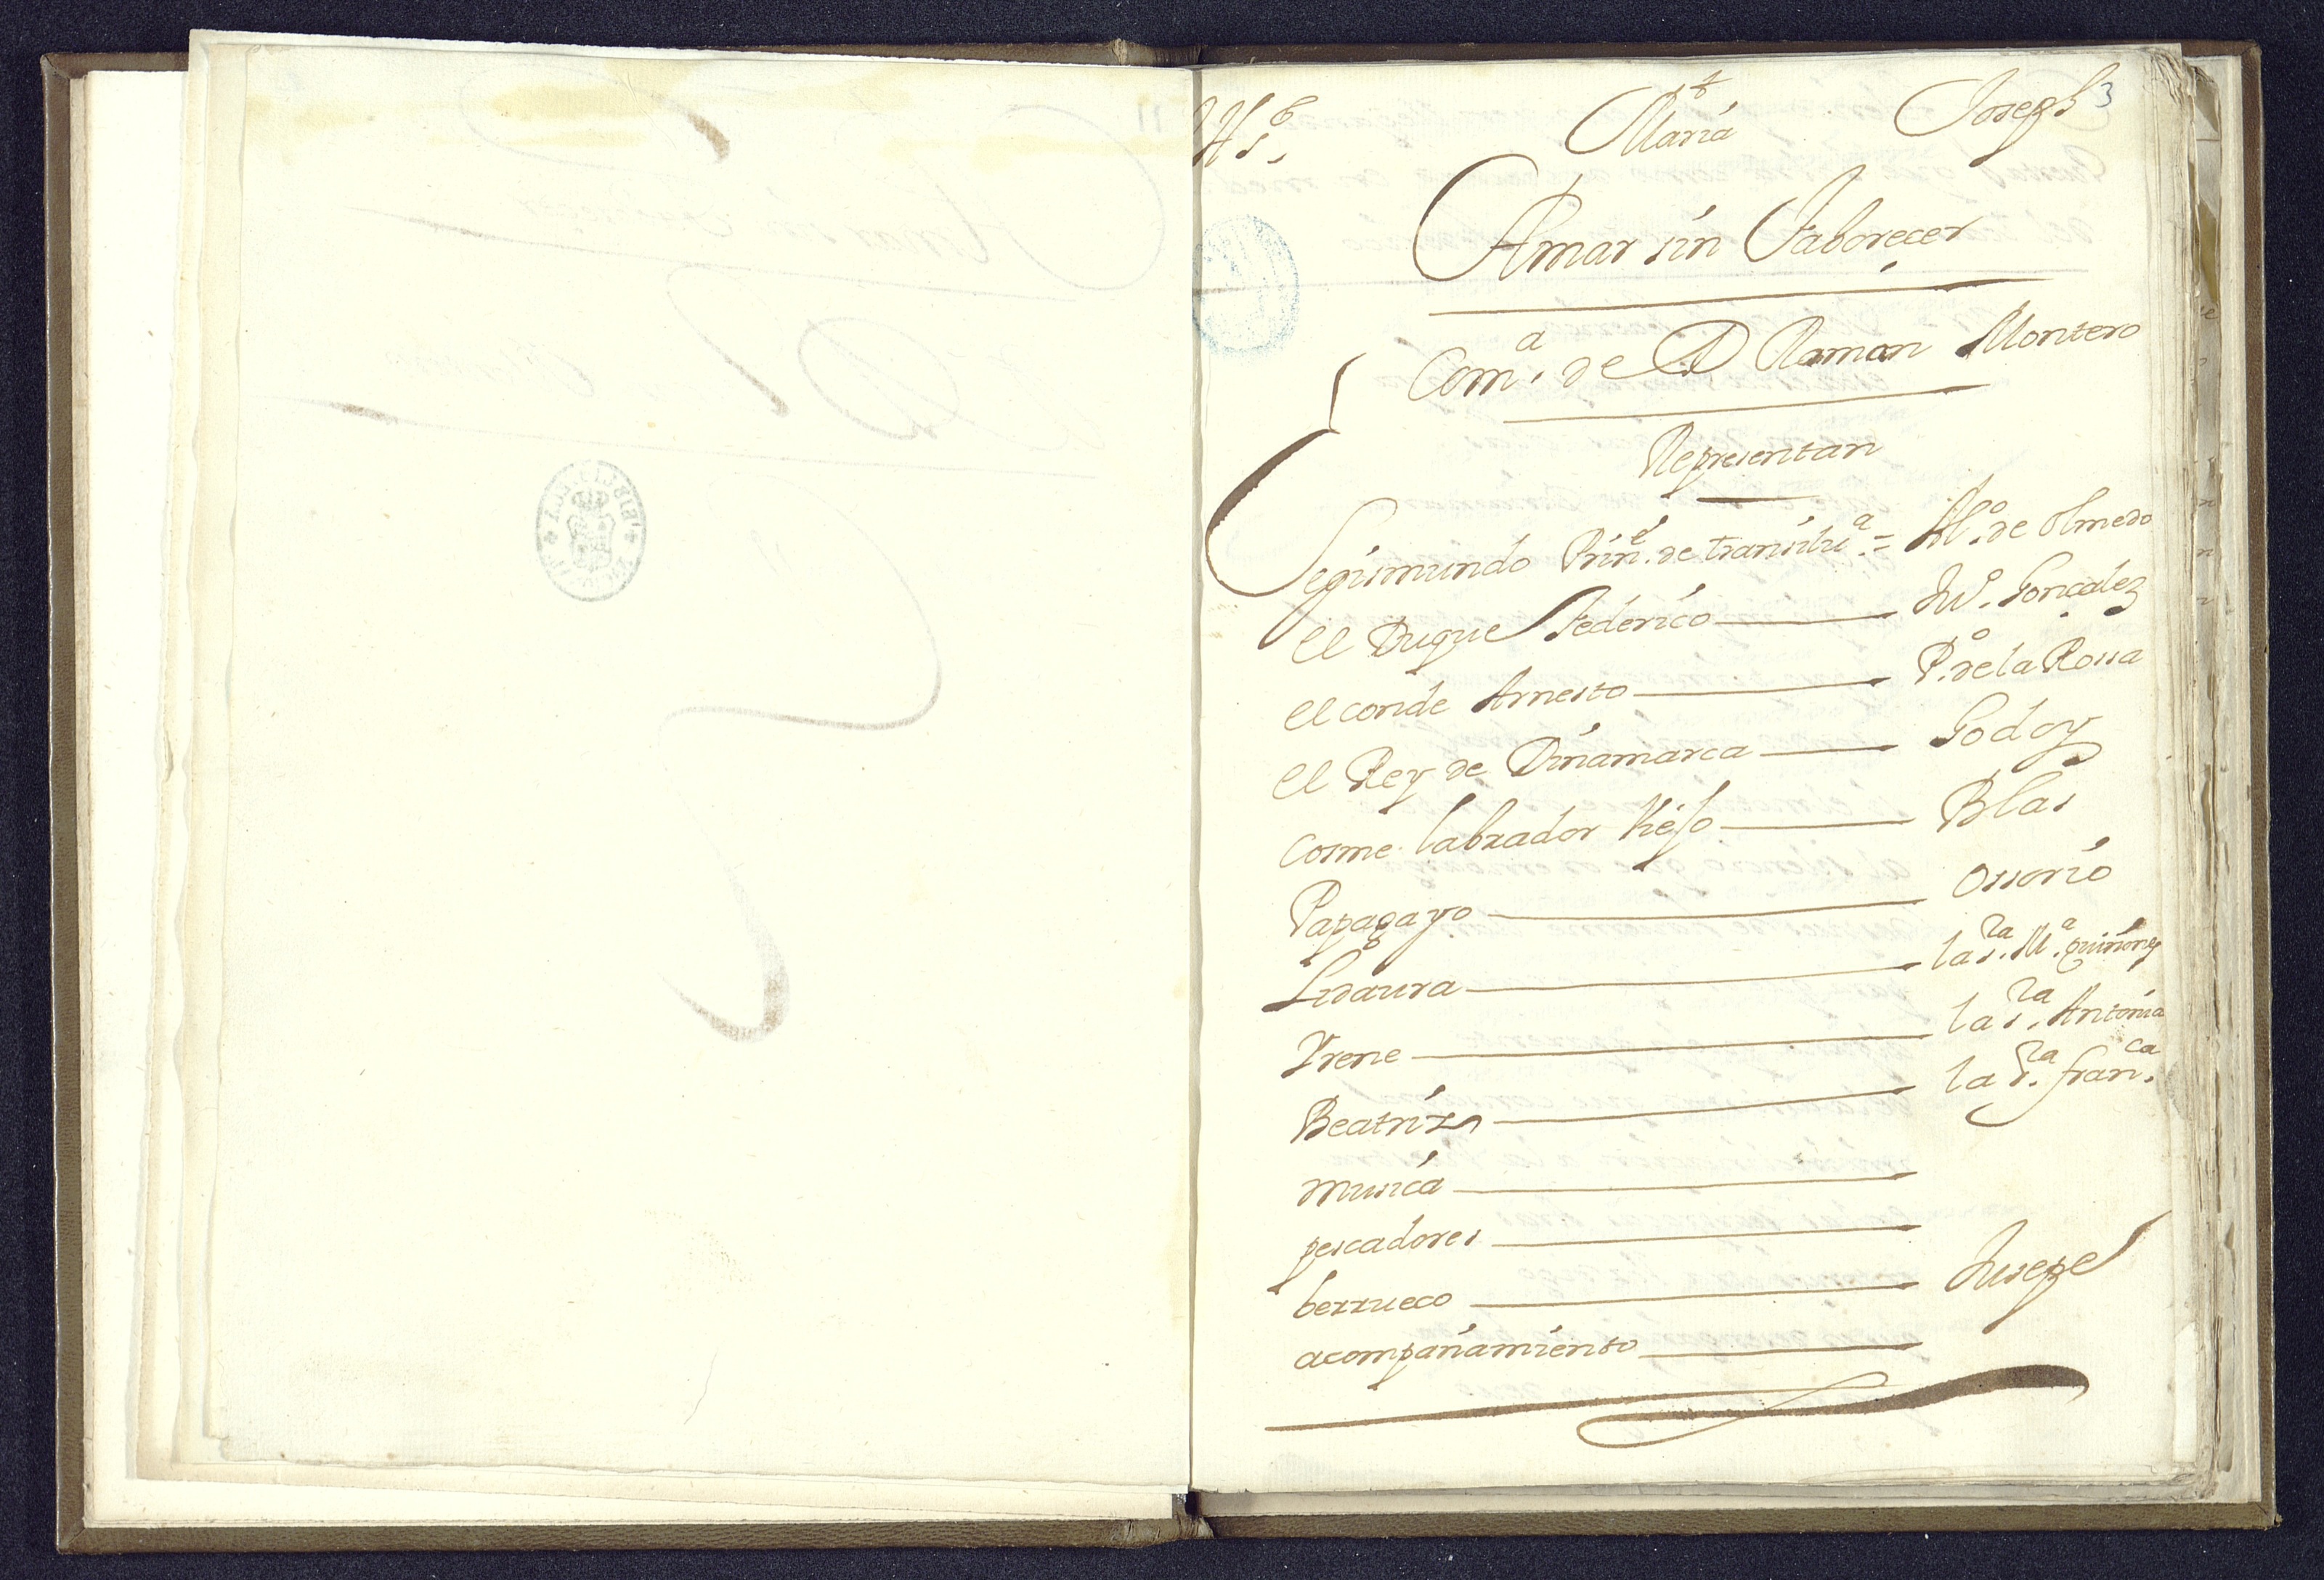 Jhs. Maria Joseph 3
Amar sin Faboreçer
Com.ª de D Ramon Montero
Representan
Segismundo Prin.e de transilu.ª = Al.º de Olmedo
el Duque Federico — Ju.º Gonçalez
el conde Arnesto — P.º de la Rossa
el Rey de Dinamarca — Godoy
Cosme labrador biejo — Blas
Papagayo — Ossorio
Lidaura — la s.ra M.ª quiñones
Yrene — la s.ra Antonia
Beatriz — la s.ra fran.ca
musica —
pescadores —
berrueco — Jusepe
acompañamiento —